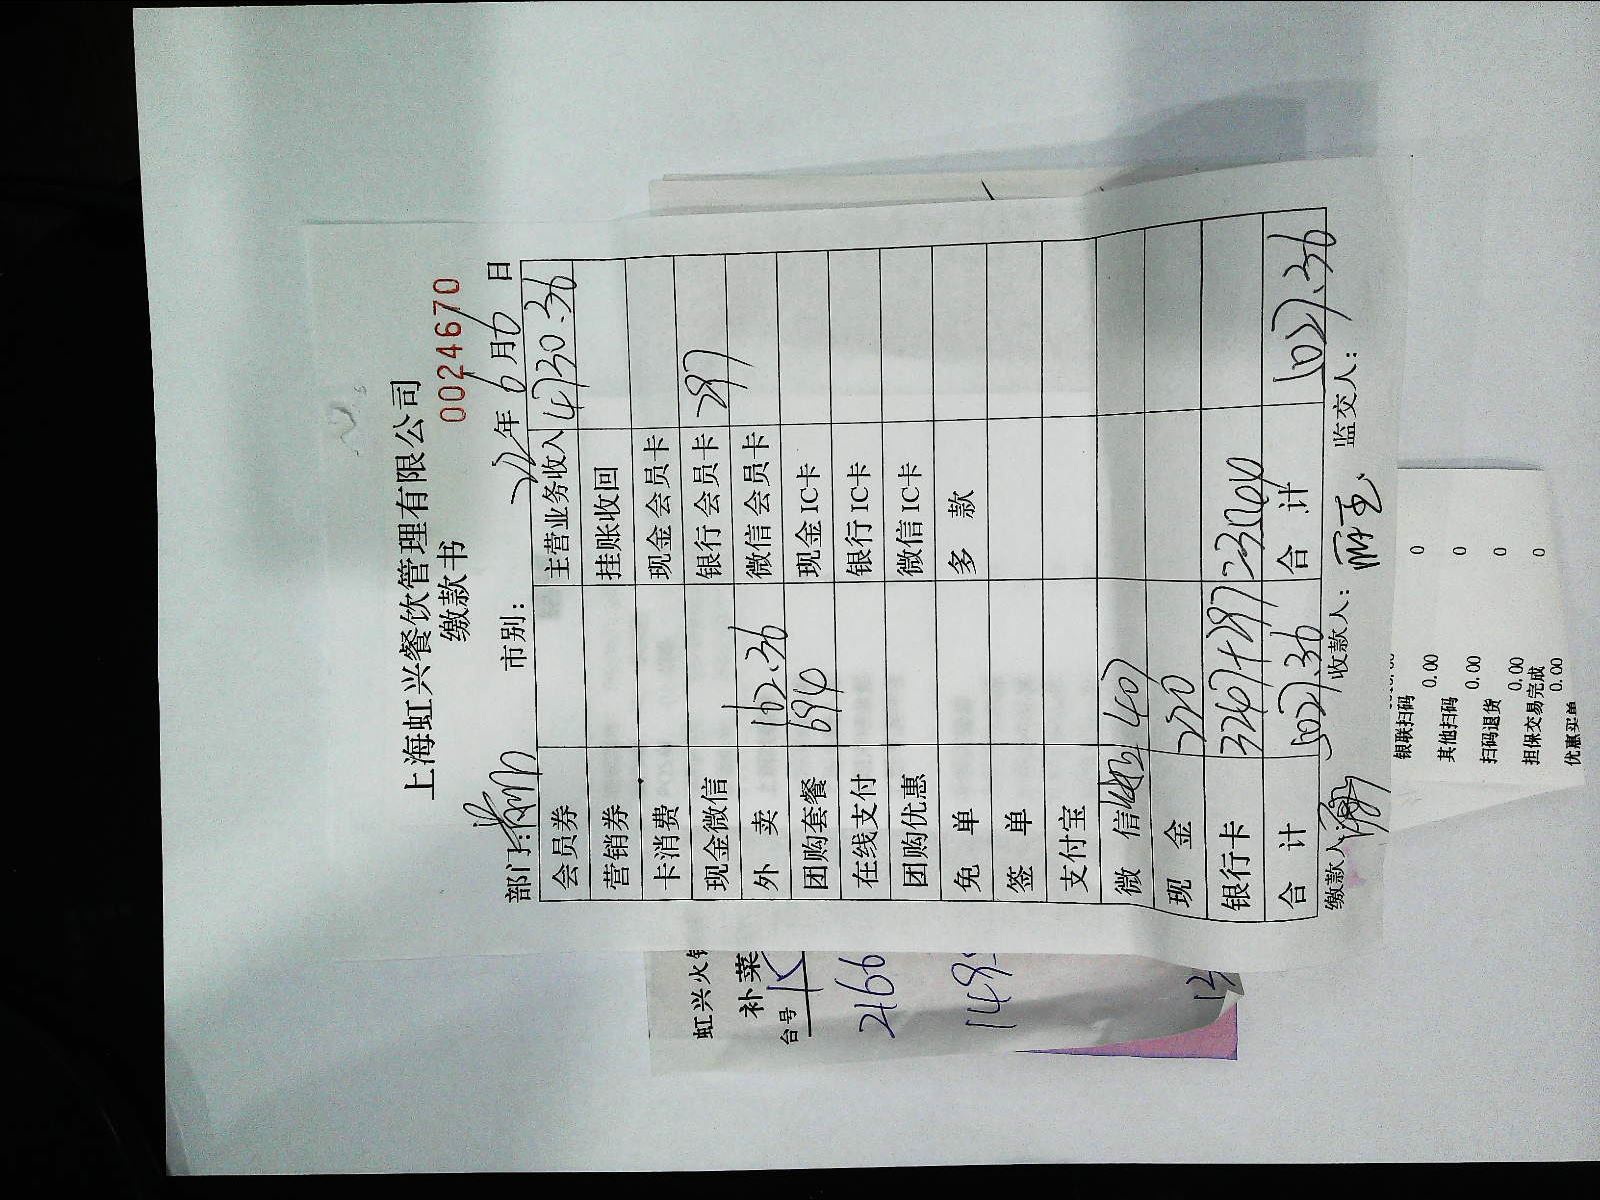 上海虹兴餐饮管理有限公司
缴款书
0024670
部门: 市别: 22年6月6日
会员券 主营业务收入 4730.36
营销券 挂账收回
卡消费 现金会员卡
现金微信 银行会员卡 297
外卖 162.36 微信会员卡
团购套餐 694 现金IC卡
在线支付 银行IC卡
团购优惠 微信IC卡
免单 多款
签单
支付宝
微信 407
现金 200
银行卡 3267+297=3564
合计 5027.36 合计 5027.36
缴款人: 收款人: 监交人:
虹兴火
补菜
台号
2166
银联扫码 0
0.00
其他扫码 0
0.00
扫码退货 0
0.00
担保交易完成 0
0.00
优惠买单